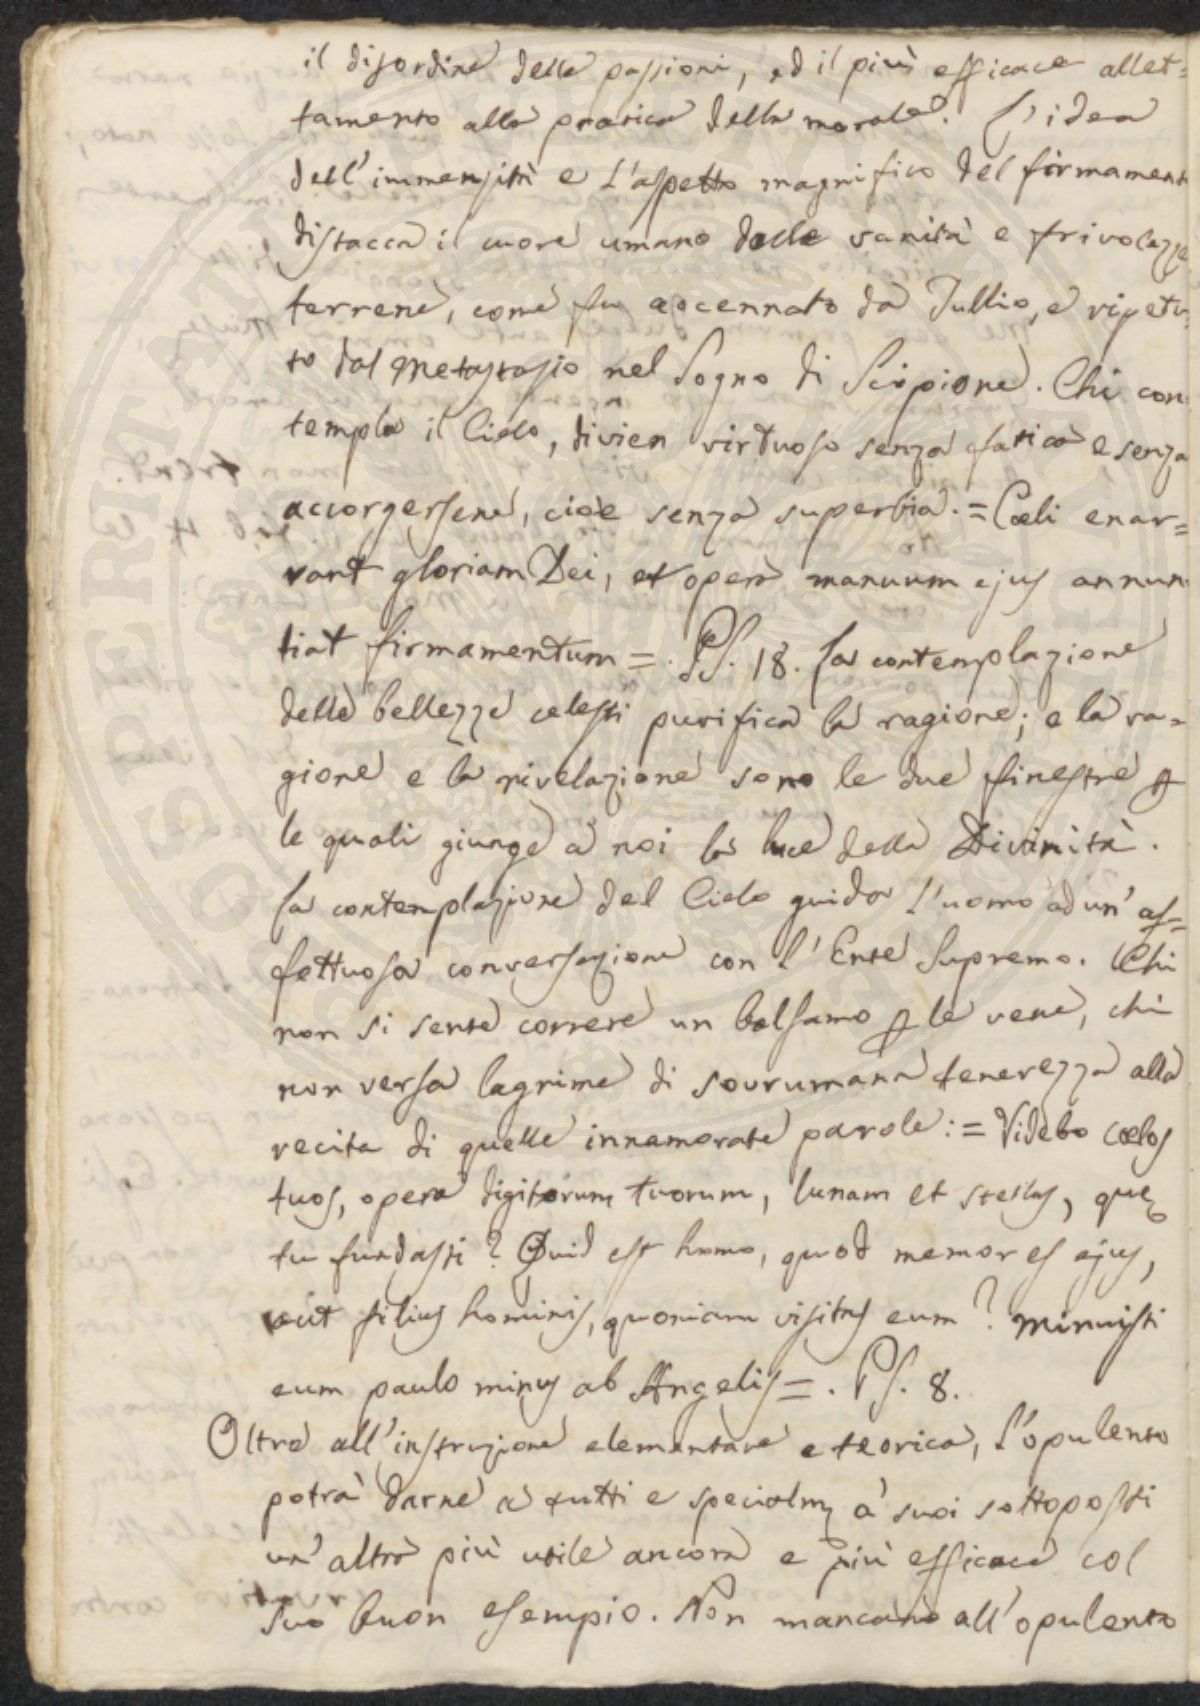 il disordine delle passioni, ed il più efficace allet=
tamento alla pratica della morale. L'idea
dell'immensità e l'aspetto magnifico del firmament
distacca il cuore umano dalle vanità e frivolezze
terrene, come fu accennato da Tullio, e ripetu-
to dal Metastasio nel Sogno di Scipione. Chi con-
templa il Cielo, divien virtuoso senza fatica e senza
accorgersene, cioè senza superbia. = Cœli enar=
rant gloriam Dei, et opera manuum ejus annun
tiat firmamentum =. Ps. 18. La contemplazione
delle bellezze celesti purifica la ragione; e la ra=
gione e la rivelazione sono le due finestre p
le quali giunge a noi la luce della Divinità.
La contemplazione del Cielo guida l'uomo ad un' af=
fettuosa conversazione con l'Ente Supremo. Chi
non si sente correre un balsamo p le vene, chi
non versa lagrime di sovrumana tenerezza alla
recita di quelle innamorate parole: = Videbo cœlos
tuos, opera digitorum tuorum, lunam et stellas, quę
tu fundasti? Quid est homo, quod memor es ejus,
aut filius hominis, quoniam visitas eum? Minuisti
eum paulo minus ab Angelis =. Ps. 8.
Oltre all'instruzione elementare e teorica, l'opulento
potrà darne a tutti e specialm à suoi sottoposti
un' altra più utile ancora e più efficace col
suo buon esempio. Non mancano all'opulento